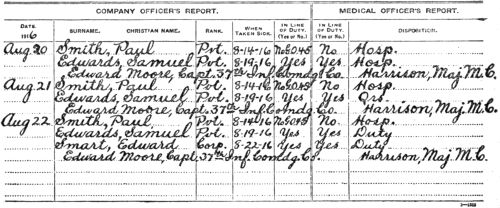 COMPANY OFFICER'S REPORT. MEDICAL OFFICER'S REPORT.
DATE. 1916 SURNAME. CHRISTIAN NAME. RANK. WHEN TAKEN SICK. IN LINE OF DUTY. (Yes or No.) IN LINE OF DUTY. (Yes or No.) DISPOSITION.
Aug. 20 Smith, Paul Pvt. 8-14-16 No No Hosp.
Edwards, Samuel Pvt. 8-19-16 Yes Yes Hosp.
Edward Moore, Capt. 37th Inf. Comdg. Co. Harrison, Maj. M.C.
Aug 21 Smith, Paul Pvt. 8-14-16 No No Hosp.
Edwards, Samuel Pvt. 8-19-16 Yes Yes Qrs.
Edward Moore, Capt. 37th Inf. Comdg. Co. Harrison, Maj. M.C.
Aug 22 Smith, Paul Pvt. 8-14-16 No. Hosp.
Edwards, Samuel Pvt. 8-19-16 Yes Yes Duty
Smart, Edward Corp. 8-22-16 Yes Yes Duty
Edward Moore, Capt. 37th Inf. Comdg. Co. Harrison, Maj. M.C.